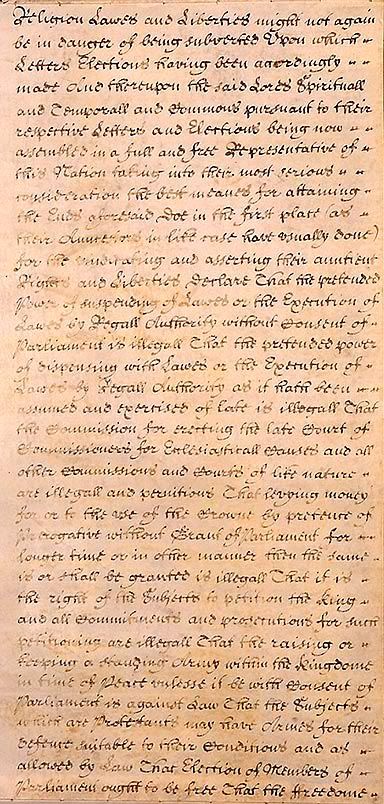 Religion Lawes and Liberties might not again
be in danger of being subverted Upon which
Letters Elections having been accordingly
made And thereupon the said Lords Spirituall
and Temporall and Commons pursuant to their
respective Letters and Elections being now
assembled in a full and free Representative of
this Nation taking into their most serious
consideration the best meanes for attaining
the Ends aforesaid Doe in the first place (as
their Auncestors in like case have usually done)
for the vindicating and asserting their auntient
Rights and Liberties, Declare That the pretended
Power of suspending of Lawes or the Execution of
Lawes by Regall Authority without Consent of
Parliament is illegall That the pretended power
of dispensing with Lawes or the Execution of
Lawes by Regall Authority as it hath been
assumed and exercised of late is illegall That
the Commission for erecting the late Court of
Commissioners for Eclesiasticall Causes and all
other Commissions and Courts of like nature
are illegall and pernitious That levying money
for or to the use of the Crowne by pretence of
Prerogative without Grant of Parliament for
longer time or in other manner then the same
is or shall be granted is illegall That it is
the right of the Subjects to petition the King
and all Commitments and prosecutions for such
petitioning are illegall That the raising or
keeping a standing Army within the Kingdome
in time of Peace unlesse it be with Consent of
Parliament is against Law That the Subjects
which are Protestants may have Armes for their
defence suitable to their Conditions and as
allowed by Law That Election of Members of
Parliament ought to be free That the freedome